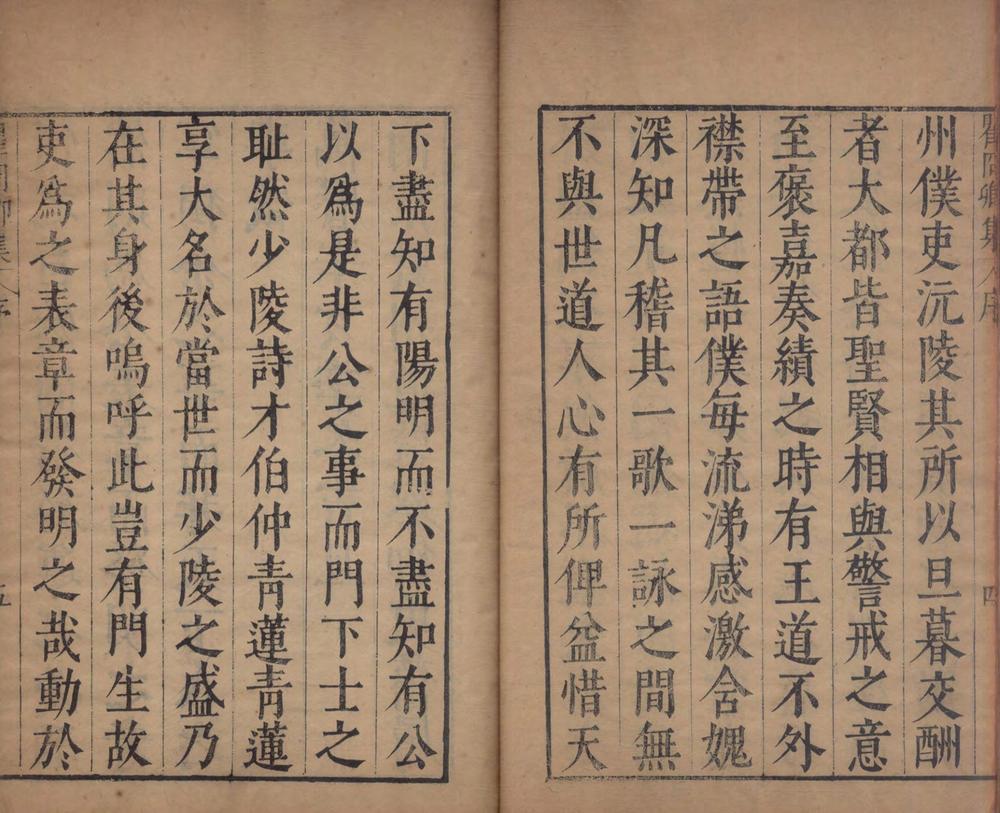 州僕吏沅陵其所以旦暮交酬
者大都皆聖賢相與警戒之意
至褒嘉奏績之時有王道不外
襟帶之語僕每流涕感激含媿
深知凡稽其一歌一詠之間無
不與世道人心有所俾益惜天
下盡知有陽明而不盡知有公
以爲是非公之事而門下士之
耻然少陵詩才伯仲靑蓮靑蓮
享大名於當世而少陵之盛乃
在其身後嗚呼此豈有門生故
吏爲之表章而發明之哉動於